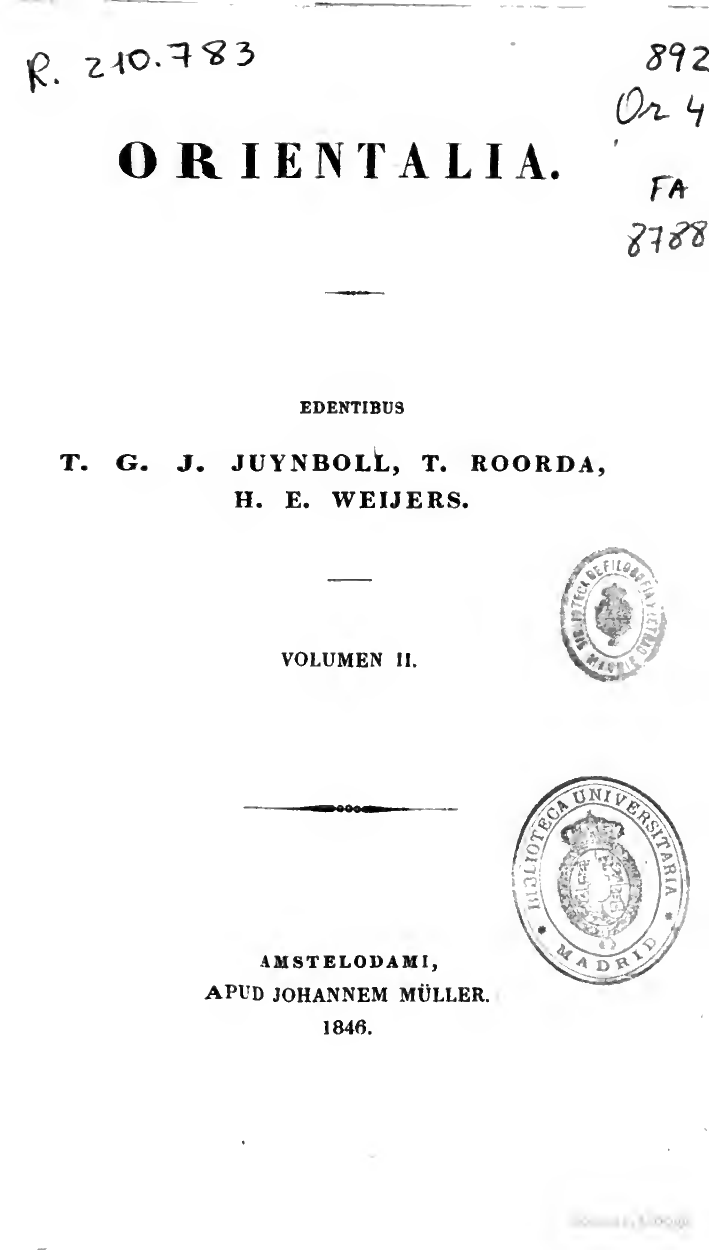 R. 210.783
892
Or 4
FA
8788
ORIENTALIA.
EDENTIBUS
T. G. J. JUYNBOLL, T. ROORDA,
H. E. WEIJERS.
BIBLIOTECA DE FILOSOFIA Y LETRAS
MADRID
VOLUMEN II.
BIBLIOTECA UNIVERSITARIA
MADRID
AMSTELODAMI,
APUD JOHANNEM MÜLLER.
1846.